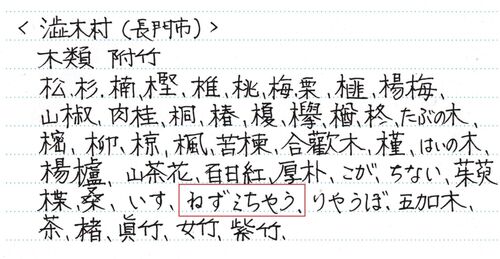 <澁木村(長門市)>
木類 附竹
松、杉、楠、樫、椎、桃、梅、栗、榧、楊梅、
山椒、肉桂、桐、椿、榎、欅、楢、柊、たぶの木、
檳、柳、椋、楓、苦楝、合歡木、槿、はいの木、
楊櫨、山茶花、百日紅、厚朴、こが、ちない、茱萸
楪、桑、いす、ねずミちやう、りやうぼ、五加木、
茶、楮、眞竹、女竹、紫竹、